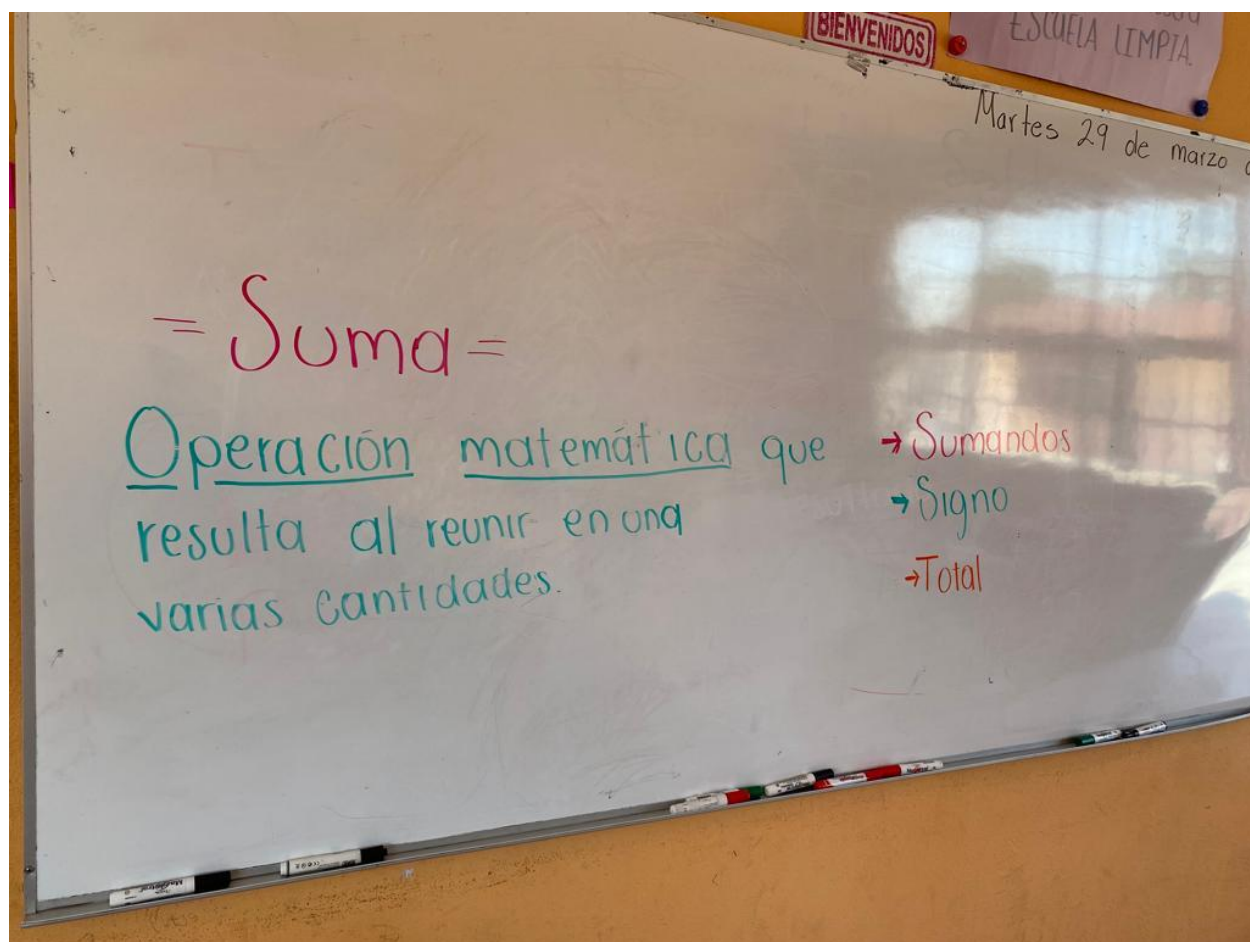 BIENVENIDOS
ESCUELA LIMPIA.
Martes 29 de marzo
= Suma =
Operación matemática que
resulta al reunir en una
varias cantidades.
→ Sumandos
→ Signo
→ Total